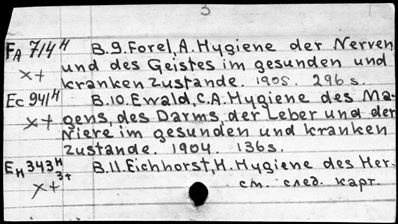 3
FA 714H B.9.Forel,A.Hygiene der Nerven
x+ und des Geistes im gesunden und
kranken Zustande. 1905. 296 s.
Ec 941H B.10.Ewald,C.A.Hygiene des Ma-
x+ gens, des Darms, der Leber und der
Niere im gesunden und kranken
Zustande. 1904. 136s.
EH 343H B.11.Eichhorst,H.Hygiene des Her-
3+
x+ см. след. карт.